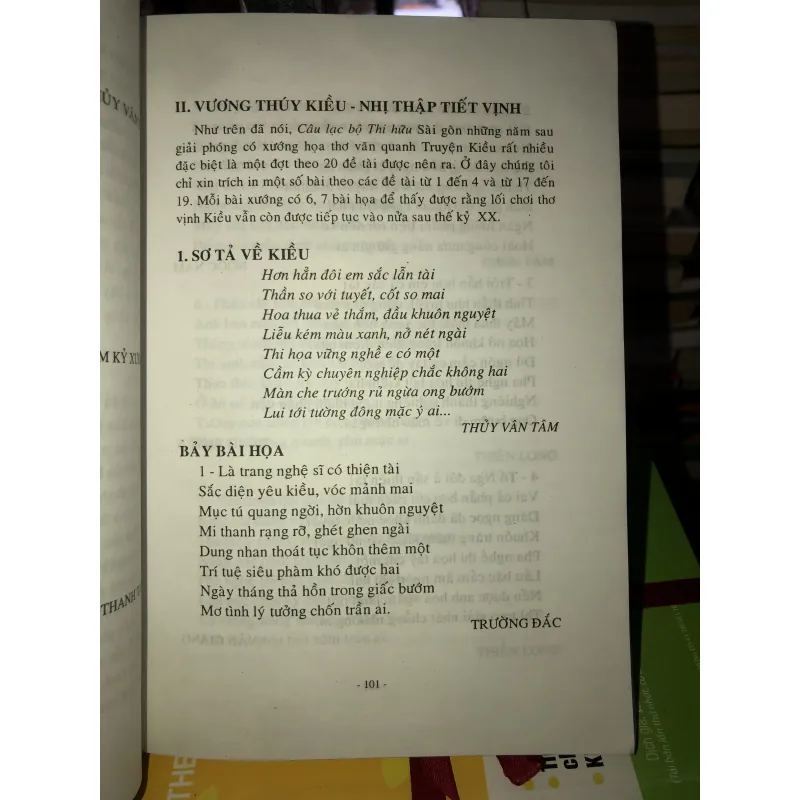 II. VƯƠNG THÚY KIỀU - NHỊ THẬP TIẾT VỊNH
Như trên đã nói, Câu lạc bộ Thi hữu Sài gòn những năm sau
giải phóng có xướng họa thơ văn quanh Truyện Kiều rất nhiều
đặc biệt là một đợt theo 20 đề tài được nên ra. Ở đây chúng tôi
chỉ xin trích in một số bài theo các đề tài từ 1 đến 4 và từ 17 đến
19. Mỗi bài xướng có 6, 7 bài họa để thấy được rằng lối chơi thơ
vịnh Kiều vẫn còn được tiếp tục vào nửa sau thế kỷ XX.
1. SƠ TẢ VỀ KIỀU
Hơn hẳn đôi em sắc lẫn tài
Thần so với tuyết, cốt so mai
Hoa thua vẻ thắm, đầu khuôn nguyệt
Liễu kém màu xanh, nở nét ngài
Thi họa vững nghề e có một
Cầm kỳ chuyên nghiệp chắc không hai
Màn che trướng rủ ngừa ong bướm
Lui tới tường đông mặc ý ai...
THỦY VÂN TÂM
BẢY BÀI HỌA
1 - Là trang nghệ sĩ có thiện tài
Sắc diện yêu kiều, vóc mảnh mai
Mục tú quang ngời, hờn khuôn nguyệt
Mi thanh rạng rỡ, ghét ghen ngài
Dung nhan thoát tục khôn thêm một
Trí tuệ siêu phàm khó được hai
Ngày tháng thả hồn trong giấc bướm
Mơ tình lý tưởng chốn trần ai.
TRƯỜNG ĐẮC
- 101 -